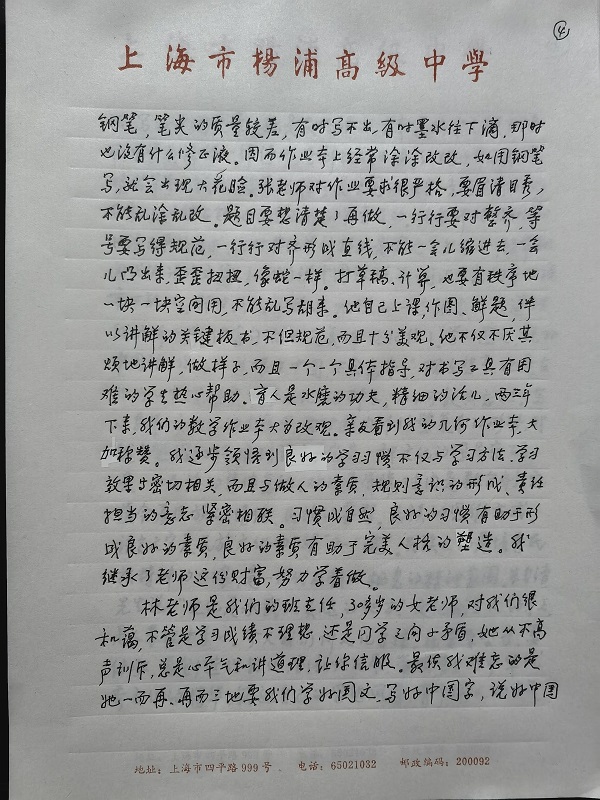 ④
上海市楊浦高級中學
钢笔，笔尖的质量较差，有时写不出，有时墨水往下滴，那时
也没有什么修正液。因而作业本上经常涂涂改改，如用钢笔
写，就会出现大花脸。张老师对作业要求很严格，要眉清目秀，
不能乱涂乱改。题目要想清楚了再做，一行行要对整齐，等
号要写得规范，一行行对齐形成直线，不能一会儿缩进去，一会
儿凸出来，歪歪扭扭，像蛇一样。打草稿、计算，也要有秩序地
一块一块空间用，不能乱写胡来。他自己上课，作图、解题，伴
以讲解的关键板书，不但规范，而且十分美观。他不仅不厌其
烦地讲解，做样子，而且一个一个具体指导，对书写工具有困
难的学生热心帮助。育人是水磨的功夫，精细的活儿，两三年
下来，我们的数学作业本大为改观。亲友看到我的几何作业本，大
加称赞。我逐步领悟到良好的学习习惯不仅与学习方法、学习
效果密切相关，而且与做人的素质，规则意识的形成、责任
担当的意志紧密相联。习惯成自然，良好的习惯有助于形
成良好的素质，良好的素质有助于完美人格的塑造。我
继承了老师这份财富，努力学着做。
林老师是我们的班主任，30多岁的女老师，对我们很
和蔼，不管是学习成绩不理想，还是同学之间小矛盾，她从不高
声训斥，总是心平气和讲道理，让你信服。最使我难忘的是
她一而再、再而三地要我们学好国文，写好中国字，说好中国
地址：上海市四平路999号 电话：65021032 邮政编码：200092